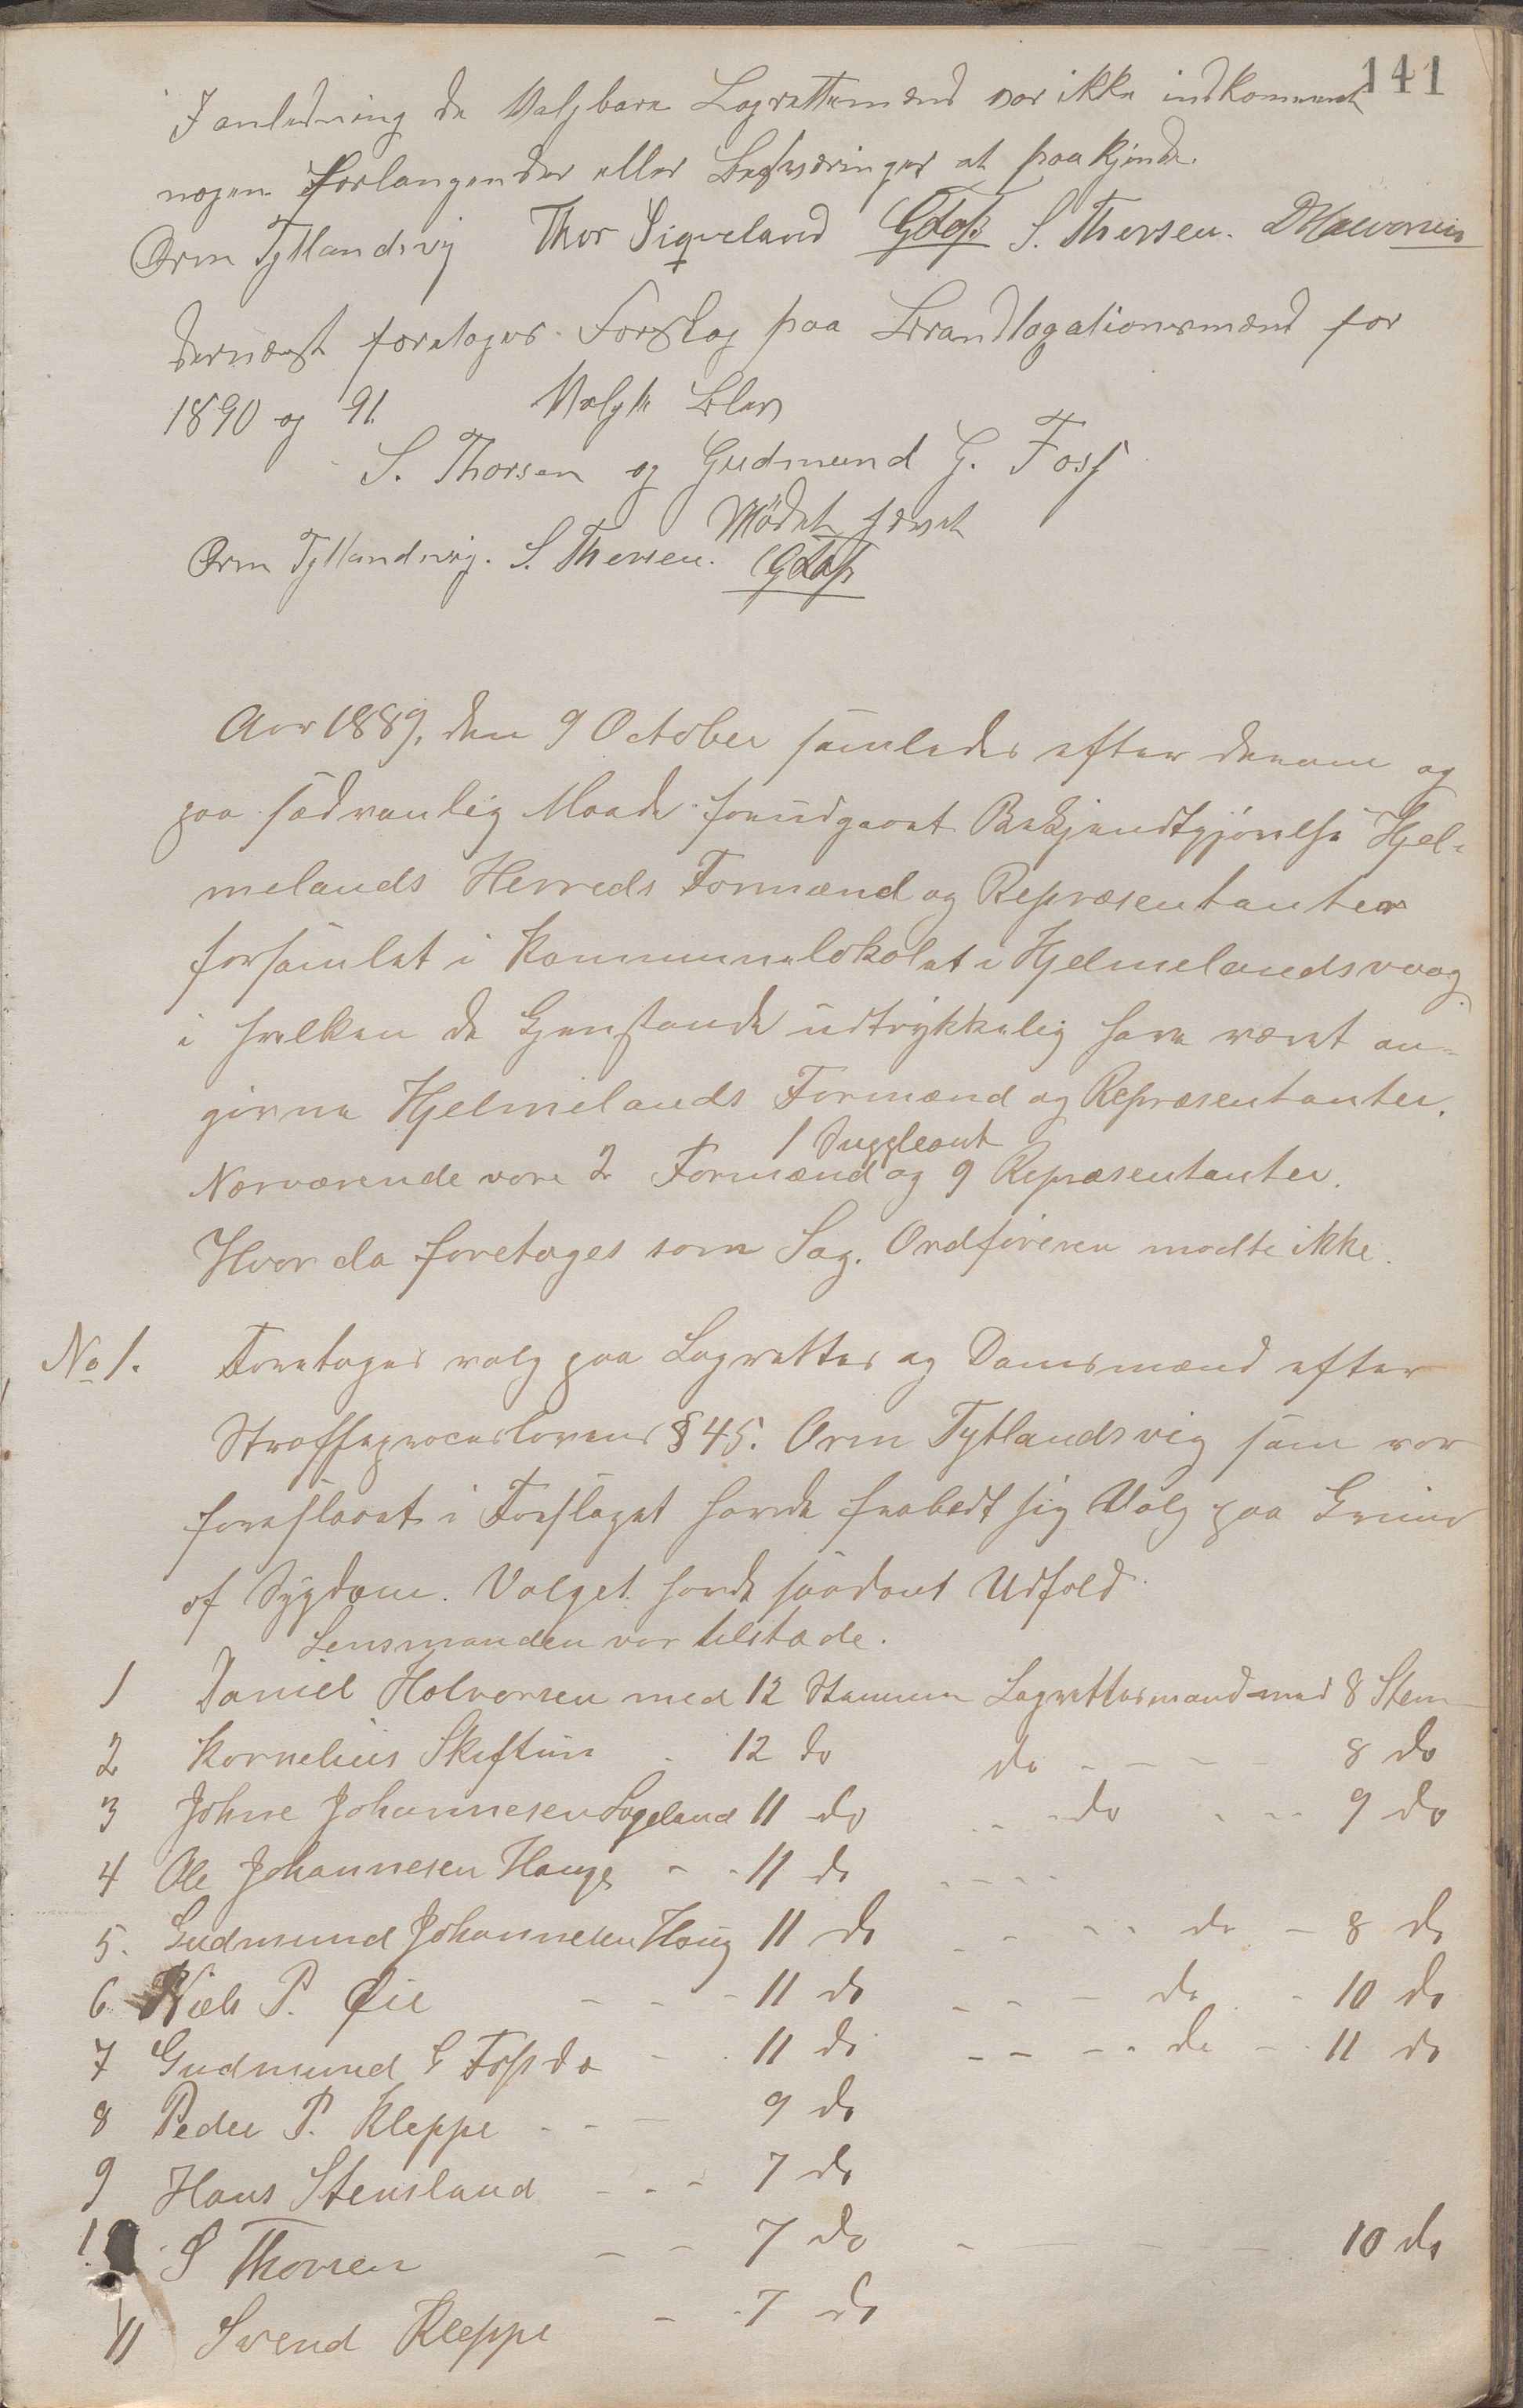 141
I anledning de Valgbare Lagrettemænd var ikke indkommet
nogen Forlangender eller Besværinger at paakjende.
Orm Tytlandsvig Thor Siqveland GFoss S. Thorsen. DHalvorsen
dernæst foretoges Forslag paa Brandtagationsmænd for
1890 og 91. Valgte Blev
S. Thorsen og Gudmund G. Foss
Mödet hævet
Orm Tytlandsvig. S. Thorsen. GFoss
Aar 1889, den 9 October samledes efter denne og
paa sædvanlig Maade foreudgaaet Bekjendtgjörelse Hjel-
melands Herreds Formænd og Repræsentanter
forsamlet i Kommunelokalet i Hjelmelandsvaag
i hvilken de Gjenstande udtrykkelig have været an-
givne Hjelmelands Formænd og Repræsentanter.
1 Suppleant
Nærværende vare 2 Formænd og 9 Repræsentanter.
Hvor da foretages som Sag. Ordföreren mödte ikke.
No 1. Foretages valg paa Lagrettes og Domsmænd efter
Straffeproceslovens § 45. Orm Tytlandsvig som var
foreslaaet i Forslaget havde frabedt sig Valg paa Grund
af Sygdom. Valget havde saadant Udfald
Lensmanden var tilstæde.
1 Daniel Halvorsen med 12 Stemmer Lagrettesmand med 8 Stem
2 Kornelius Skiftun - 12 do do - - - - 8 do
3 Johne Johannesen Sageland 11 do - - do - - - 9 do
4 Ole Johannesen Hauge - - 11 do - - - -
5. Gudmund Johannesen Haug 11 do - - - - do - 8 do
6 Niels P. Øie - - - 11 do - - - do - 10 do
7 Gudmund G Foss do - - 11 do - - - - do - - 11 do
8 Peder P. Kleppe - - - 9 do
9 Hans Stensland - - - 7 do
10 S Thorsen - - 7 do - - - - 10 do
11 Svend Kleppe - - 7 do